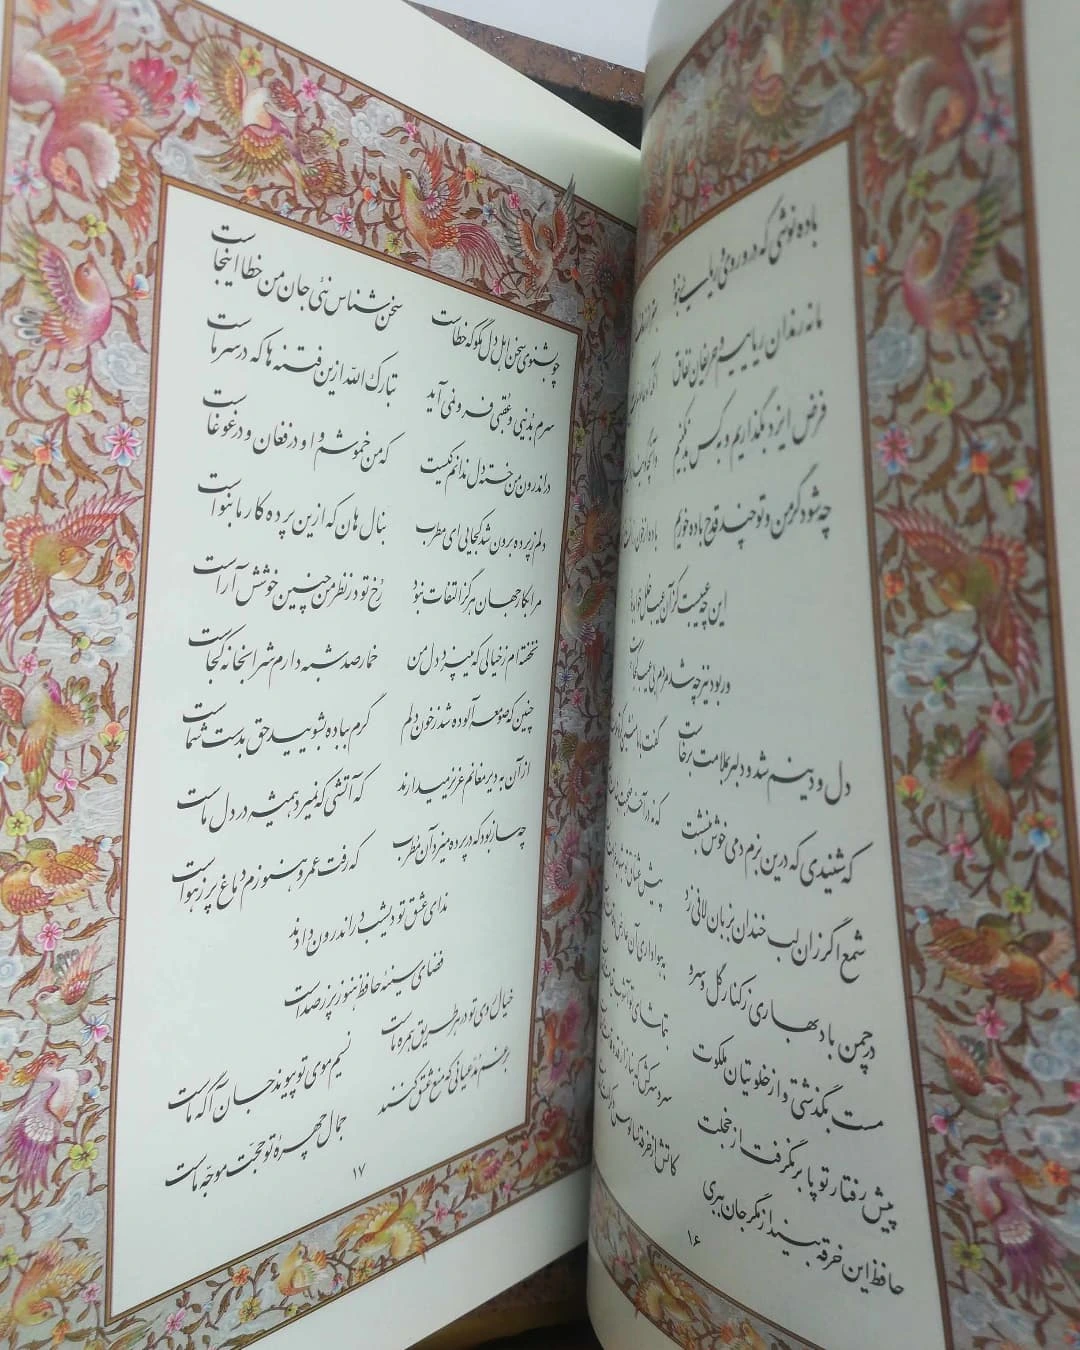 باده نوشی که درو روی و ریایی نبود
ما نه رندان ریاییم و حریفان نفاق
فرض ایزد بگذاریم و بکس بد نکنیم
چه شود گر من و تو چند قدح باده خوریم باده از خون
این چه عیبست کز آن عیب خلل خواهد
ور بود نیز چه شد مردم بی عیب کجاست
دل و دینم شد و دلبر بملامت برخاست گفت با ما منشین کز تو
که شنیدی که درین بزم دمی خوش بنشست که نه در آخر صحبت
شمع اگر زان لب خندان بزبان لافی زد پیش عشاق تو شبها
در چمن باد بهاری ز کنار گل و سرو به هواداری آن عارض
مست بگذشتی و از خلوتیان ملکوت بتماشای تو آشوب
پیش رفتار تو پا بر نگرفت از خجلت سرو سرکش که بناز از قد و
حافظ این خرقه بینداز مگر جان ببری کاتش از خرقه سالوس و
۱۶
چو بشنوی سخن اهل دل مگو که خطاست سخن شناس نئی جان من خطا اینجاست
سرم بدنیی و عقبی فرو نمی آید تبارک الله ازین فتنه ها که در سر ماست
در اندرون من خسته دل ندانم کیست که من خموشم و او در فغان و در غوغاست
دلم ز پرده برون شد کجایی ای مطرب بنال هان که ازین پرده کار ما بنواست
مرا بکار جهان هرگز التفات نبود رخ تو در نظر من چنین خوشش آراست
نخفته ام ز خیالی که میپزد دل من خمار صد شبه دارم شرابخانه کجاست
چنین که صومعه آلوده شد ز خون دلم گرم بباده بشویید حق بدست شماست
از آن به دیر مغانم عزیز میدارند که آتشی که نمیرد همیشه در دل ماست
چه ساز بود که در پرده میزد آن مطرب که رفت عمر و هنوزم دماغ پر ز هواست
ندای عشق تو دیشب در اندرون دادند
فضای سینهٔ حافظ هنوز پر ز صداست
خیال روی تو در هر طریق همره ماست نسیم موی تو پیوند جان آگه ماست
برغم مدعیانی که منع عشق کنند جمال چهرهٔ تو حجّت موجّه ماست
۱۷